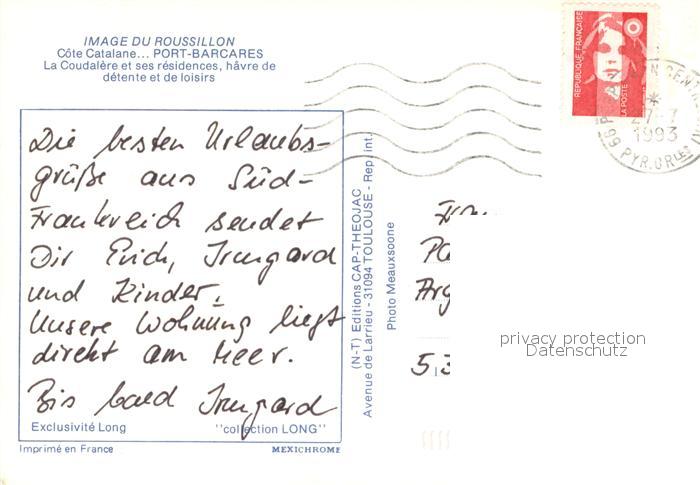 IMAGE DU ROUSSILLON
Côte Catalane... PORT-BARCARES
La Coudalère et ses résidences, hâvre de
détente et de loisirs
Die besten Urlaubs-
grüße aus Süd-
Frankreich sendet
Dir Erich, Irmgard
und Kinder.
Unsere Wohnung liegt
direkt am Meer.
Bis bald Irmgard
Exclusivité Long
"collection LONG"
Imprimé en France
MEXICHROME
(N-T) Editions CAP-THEOJAC
Avenue de Larrieu - 31094 TOULOUSE - Rep. int.
Photo Meauxsoone
REPUBLIQUE FRANÇAISE
LA POSTE
27-7
1993
66 PYR.OR LES
5.3
privacy protection
Datenschutz